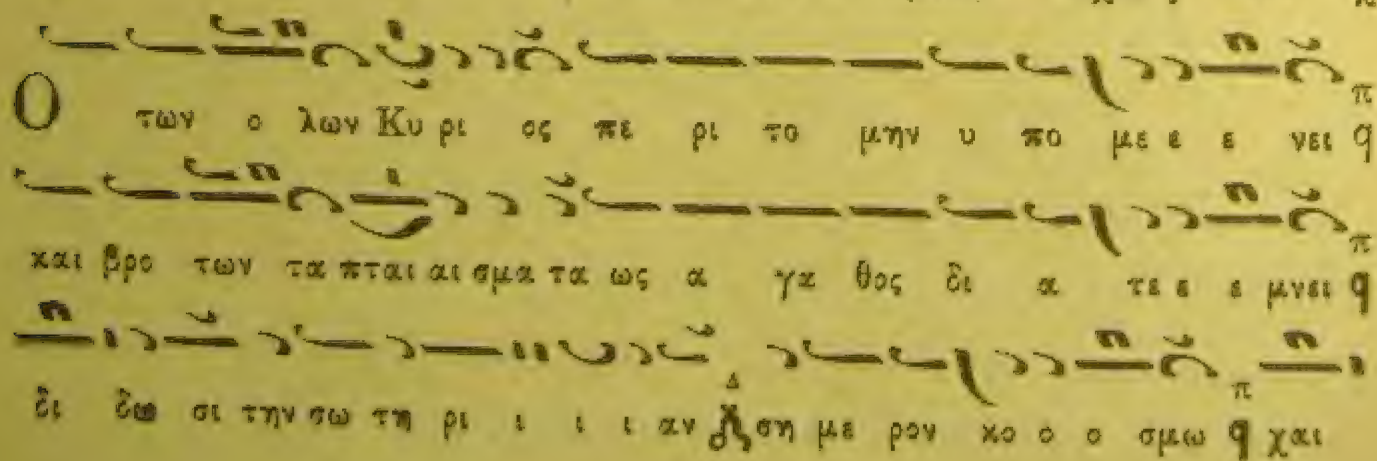 Ο των ο λων Κυ ρι ος πε ρι το μην υ πο με ε ε νει
και βρο των τα πται αι σμα τα ως α γα θος δι α τε ε ε μνει
δι δω σι την σω τη ρι ι ι ι αν ση με ρον κο ο ο σμω χαι